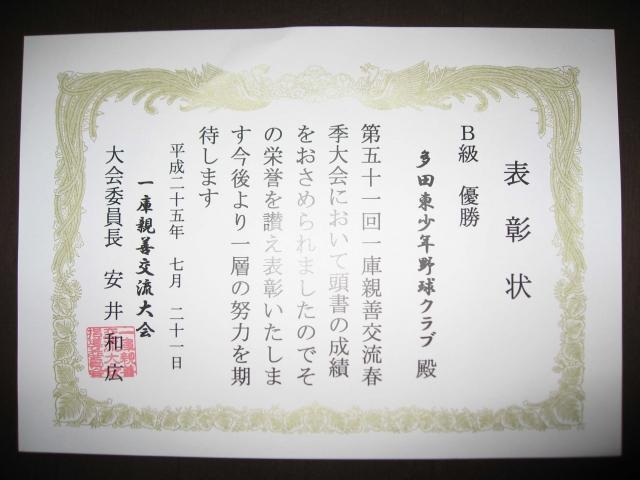 表彰状
B級 優勝
多田東少年野球クラブ 殿
第五十一回一庫親善交流春
季大会において頭書の成績
をおさめられましたのでそ
の栄誉を讃え表彰いたしま
す今後より一層の努力を期
待します
平成二十五年 七月 二十一日
一庫親善交流大会
大会委員長 安井和広